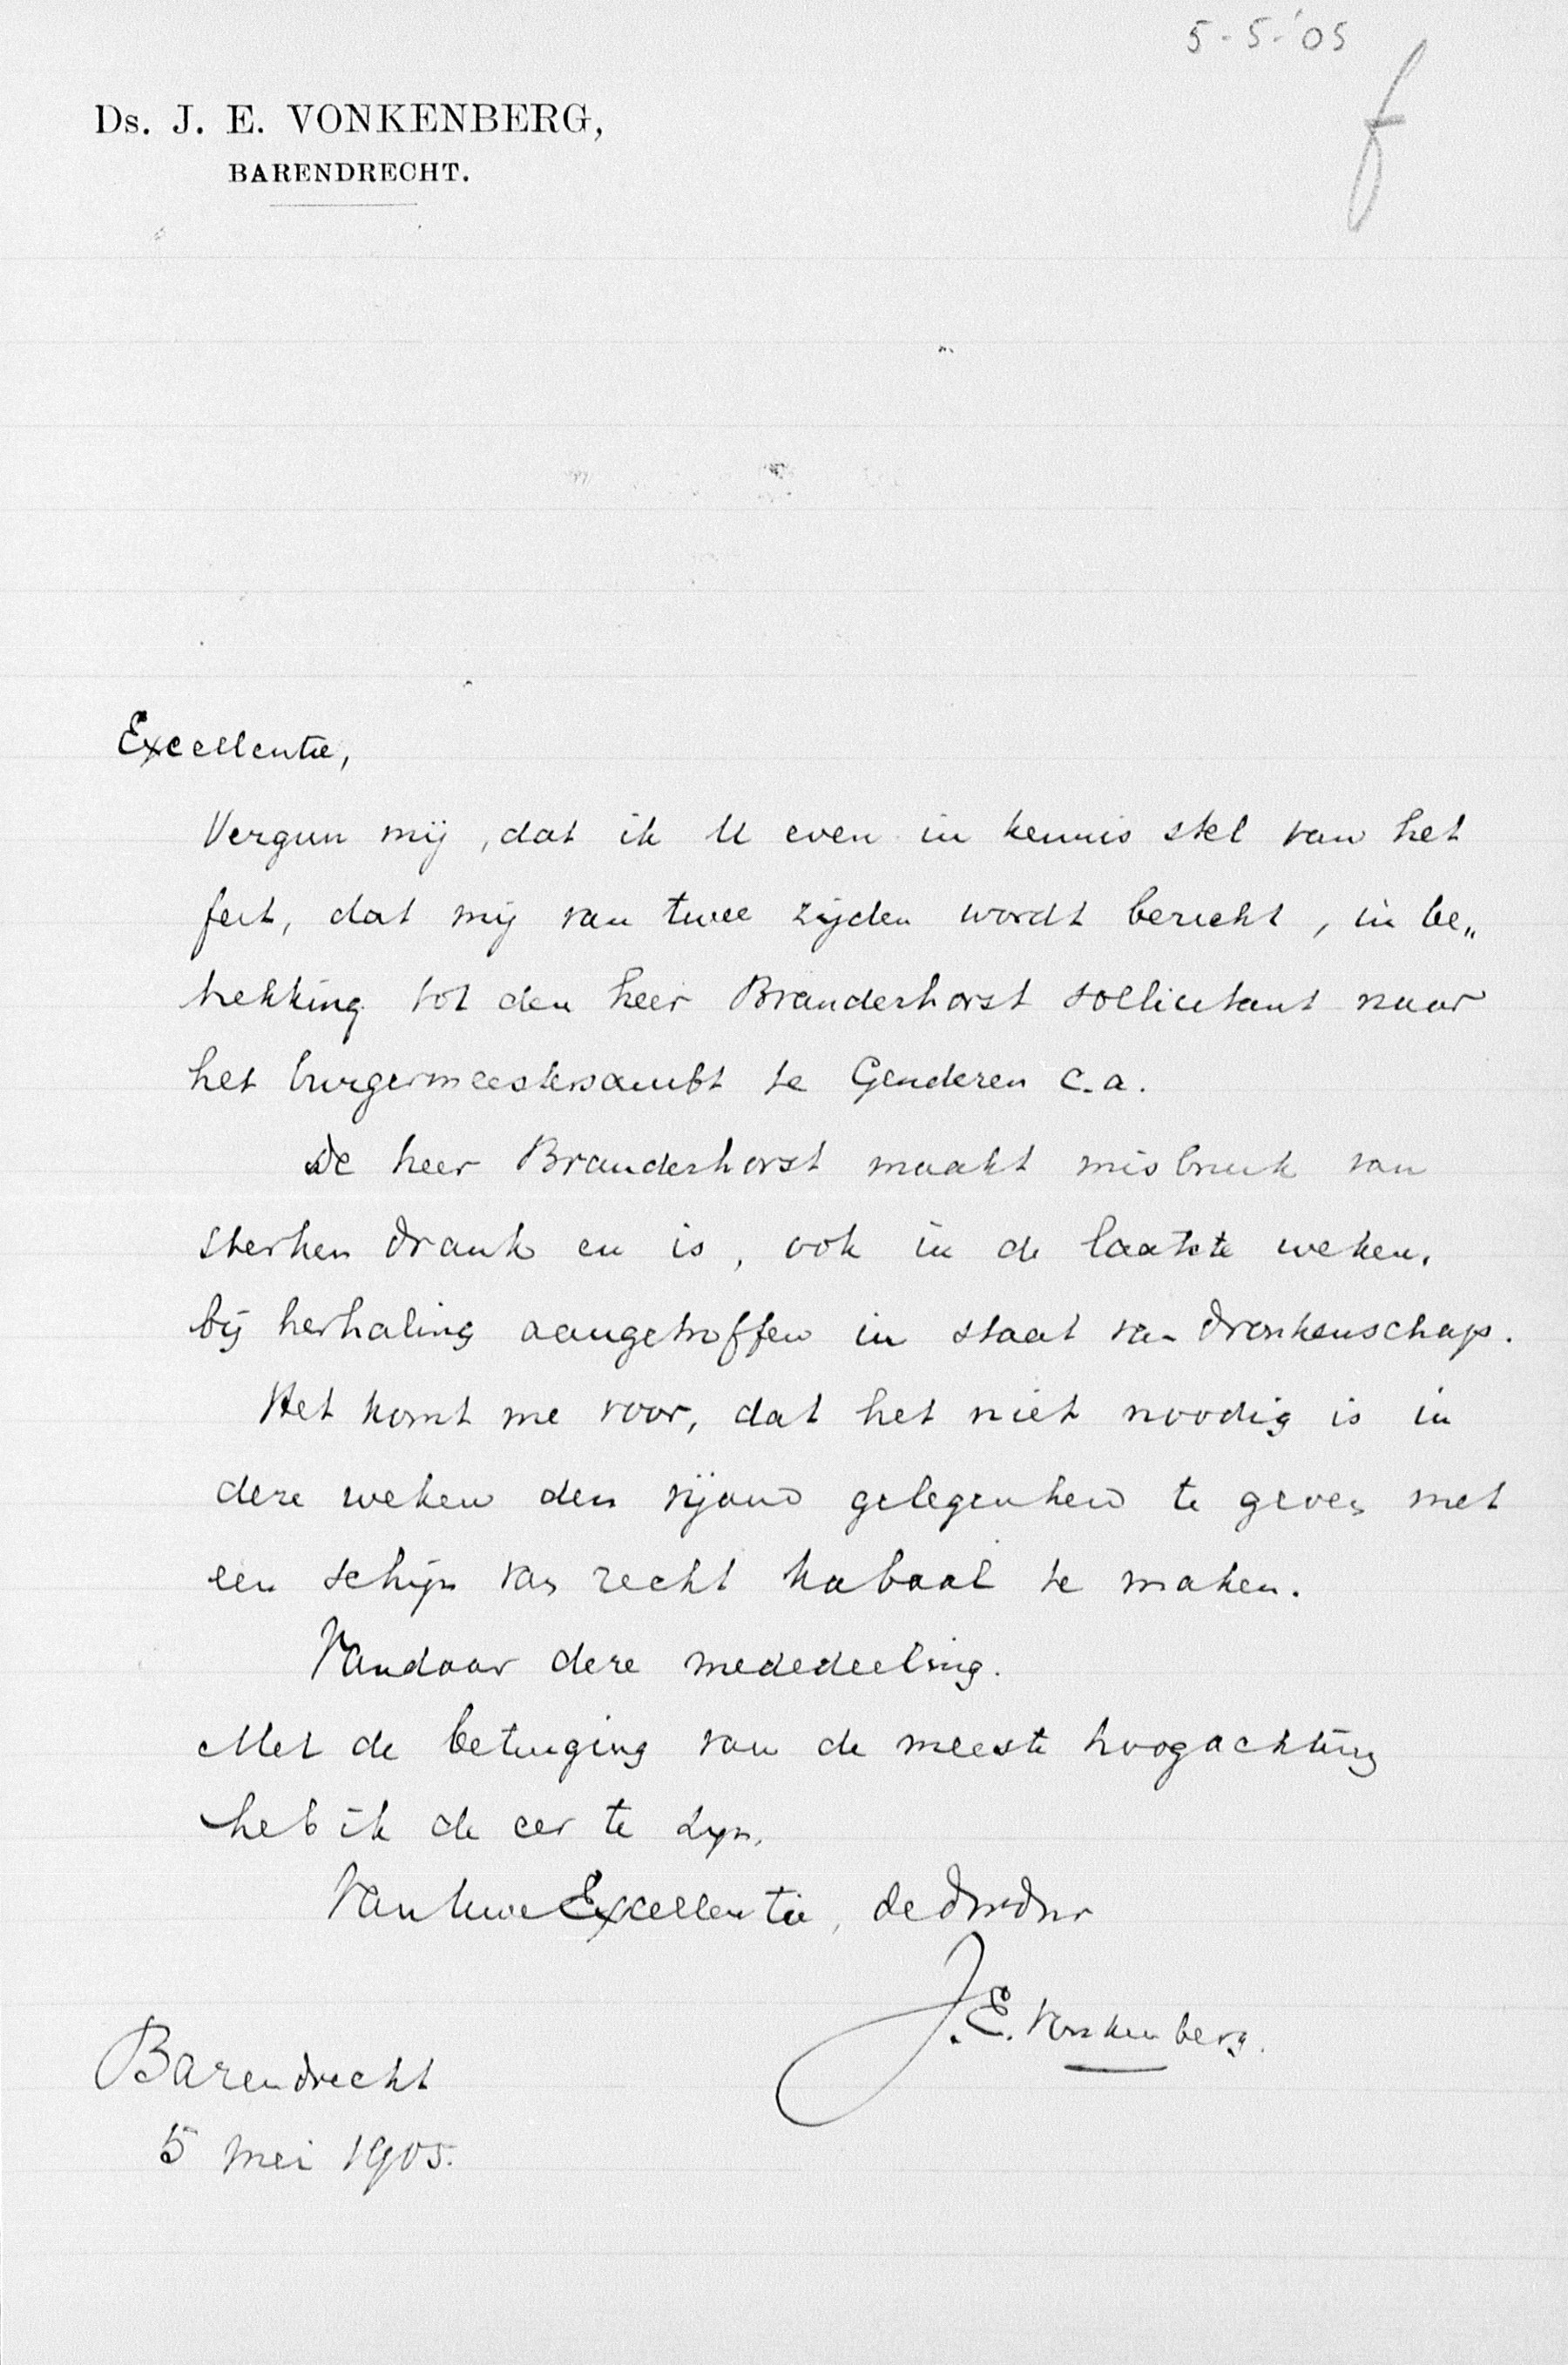 5-5-'05
f
Ds. J. E. VONKENBERG,
BARENDRECHT.
Excellentie,
Vergun mij, dat ik U even in kennis stel van het
feit, dat mij van twee zijden wordt bericht, in be„
trekking tot den heer Branderhorst sollicitant naar
het burgermeestersambt te Genderen c.a.
De heer Branderhorst maakt misbruik van
sterken drank en is, ook in de laatste weken,
bij herhaling aangetroffen in staat van dronkenschap.
Het komt me voor, dat het niet noodig is in
deze weken den vijand gelegenheid te geven met
een schijn van recht kabaal te maken.
Vandaar deze mededeeling.
Met de betuiging van de meeste hoogachting
heb ik de eer te zijn,
Van Uwe Excellentie, de dw dnr
J.E. Vonkenberg.
Barendrecht
5 Mei 1905.